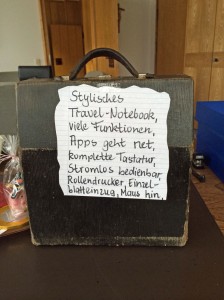 Stylisches
Travel-Notebook,
viele Funktionen,
Apps geht net,
komplette Tastatur,
Stromlos bedienbar,
Rollendrucker, Einzel-
blatteinzug, Maus hin,